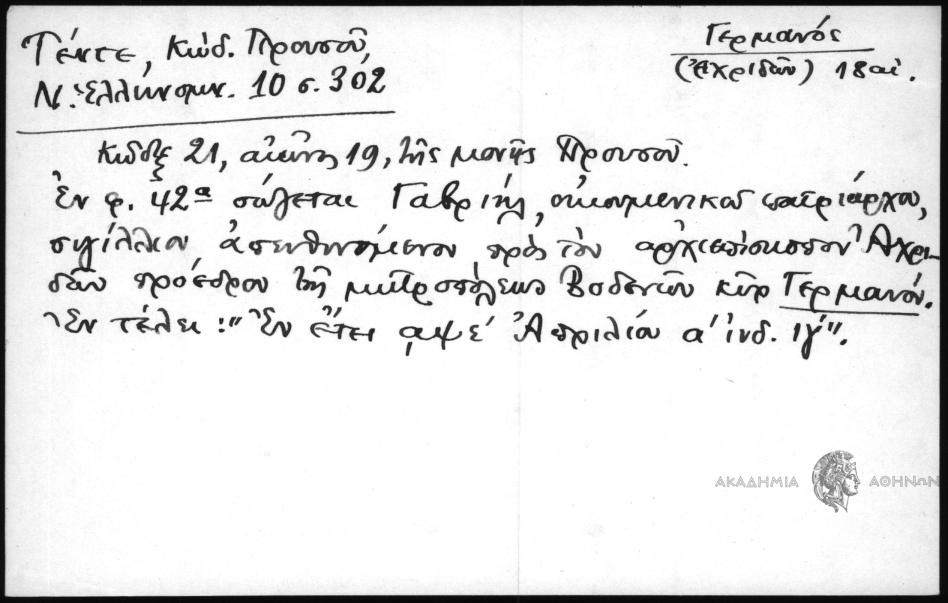 Τέντε, Κώδ. Προυσοῦ,
Ν. Ἑλληνομν. 10 σ. 302
Γερμανός
(Ἀχριδῶν) 18 αἰ.
Κῶδιξ 21, αἰῶνος 19, τῆς μονῆς Προυσοῦ.
Ἐν φ. 42α σώζεται Γαβριήλ, οἰκουμενικοῦ πατριάρχου,
σιγίλλιον ἀπευθυνόμενον πρὸς τὸν ἀρχιεπίσκοπον Ἀχρι-
δῶν πρόεδρον τῆς μητροπόλεως Βοδενῶν κὺρ Γερμανόν.
Ἐν τέλει : "Ἐν ἔτει αψε΄ Ἀπριλίου α΄ ἰνδ. ιγ΄".
ΑΚΑΔΗΜΙΑ ΑΘΗΝΩΝ